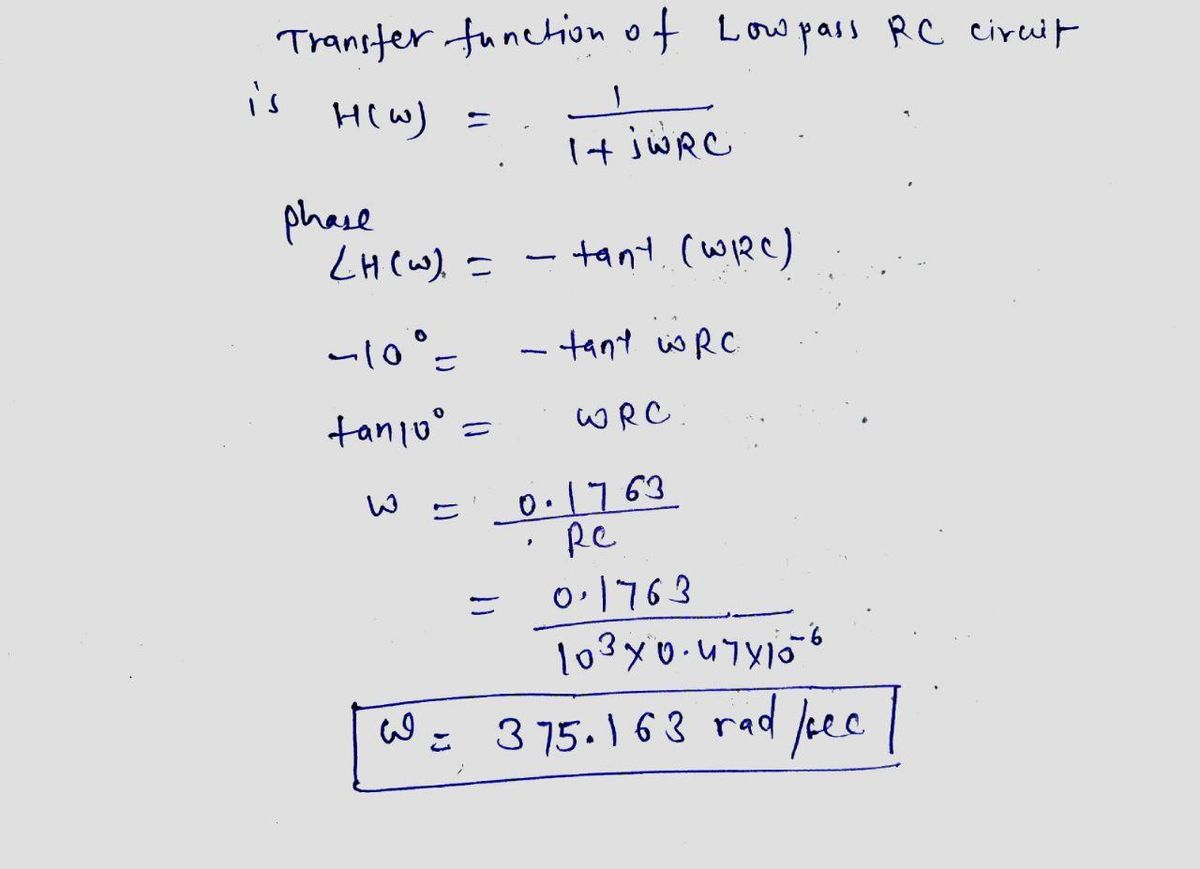 Transfer function of Low pass RC circuit
is H(ω) = 1 / 1 + jωRC
phase
∠H(ω) = - tan⁻¹ (ωRC)
-10° = - tan⁻¹ ωRC
tan10° = ωRC
ω = 0.1763 / RC
= 0.1763 / 10³ × 0.47×10⁻⁶
ω = 375.163 rad/sec